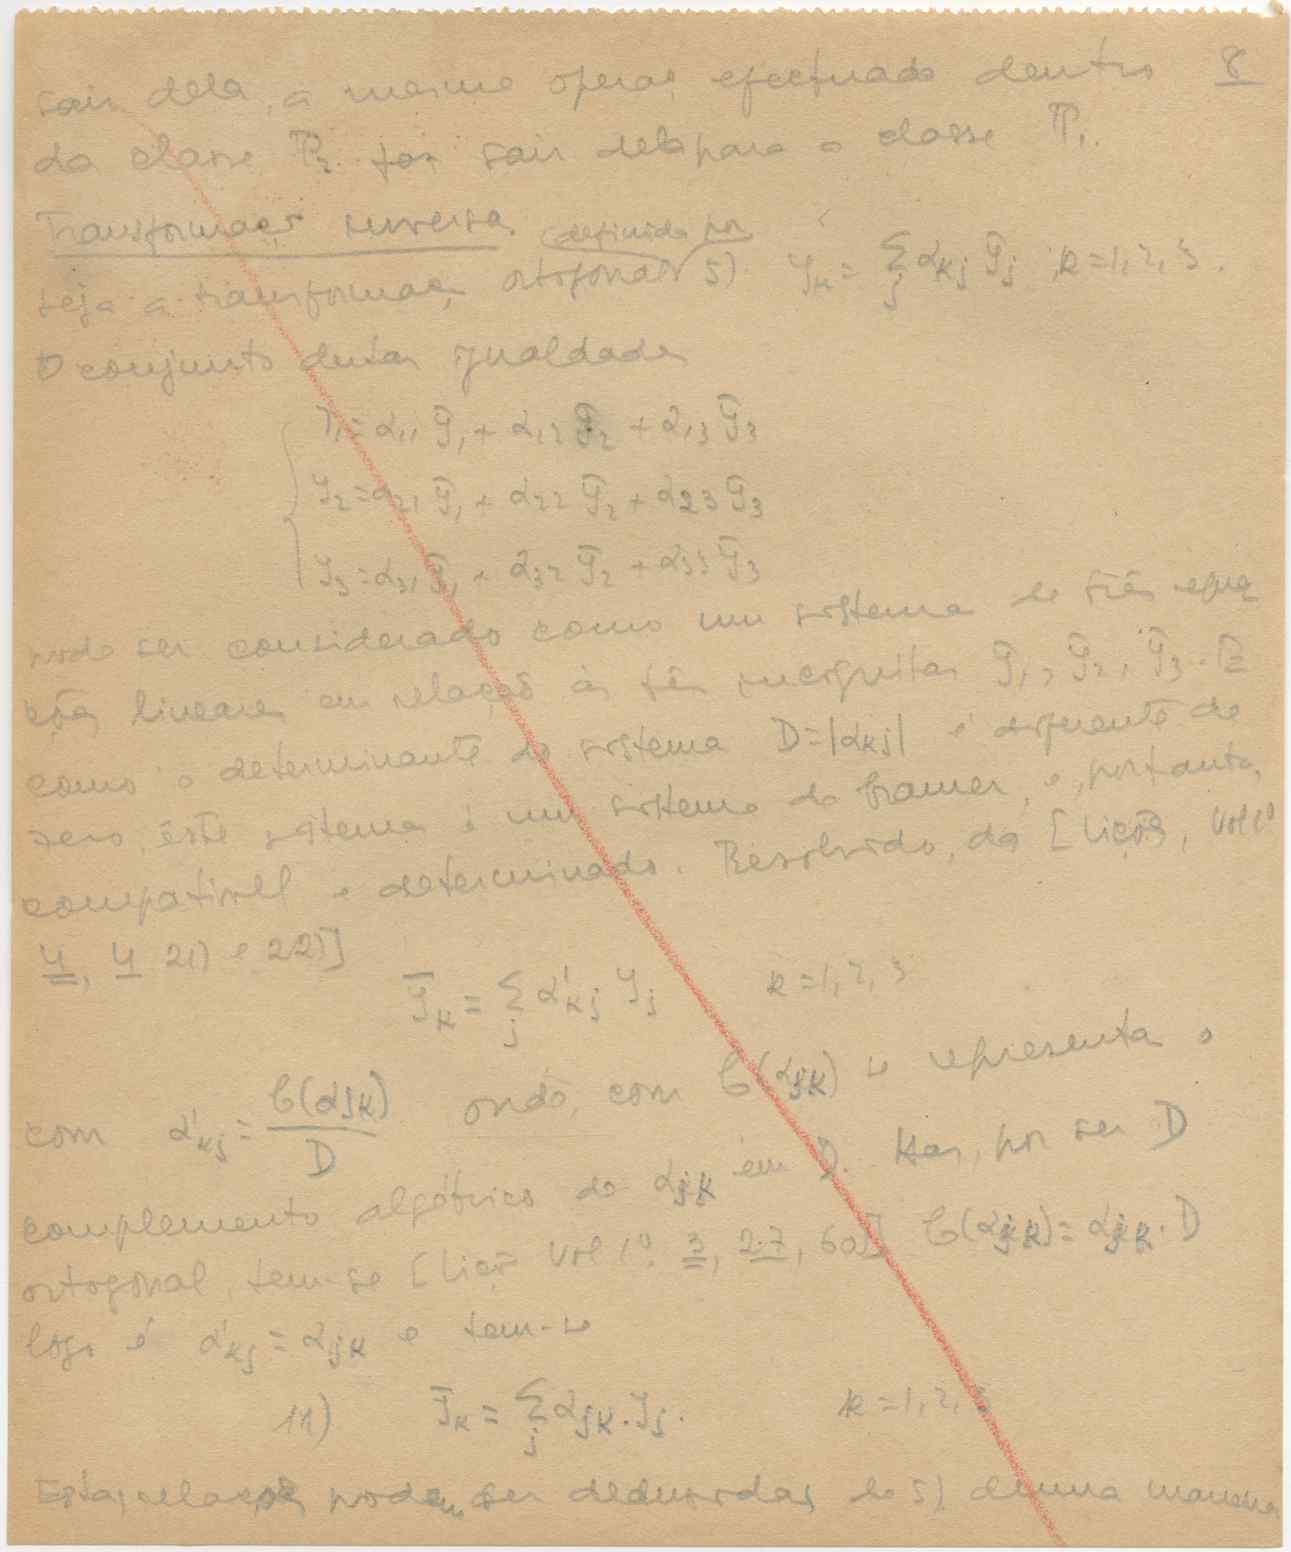 sair dela, a mesma operaç efectuada dentro 8
da classe P₂ faz sair dela para a classe P₁.
Transformaçõ inversa
seja a transformaç ortogonal definida por 5) yₖ = Σⱼ αₖⱼ ȳⱼ ; k=1,2,3.
O conjunto destas igualdades
y₁=α₁₁ ȳ₁ + α₁₂ ȳ₂ + α₁₃ ȳ₃
y₂=α₂₁ ȳ₁ + α₂₂ ȳ₂ + α₂₃ ȳ₃
y₃=α₃₁ ȳ₁ + α₃₂ ȳ₂ + α₃₃ ȳ₃
pode ser considerado como um sistema de três equa
ções lineares em relação às três incognitas ȳ₁, ȳ₂, ȳ₃. E
como o determinante do sistema D=|αₖⱼ| é diferente de
zero, êste sistema é um sistema de Cramer, e, portanto,
compativel e determinado. Resolvido, dá [Lições, Vol 1º
4, 4 21) e 22)]
ȳₖ = Σⱼ α'ₖⱼ yⱼ k=1,2,3
com α'ₖⱼ = C(αⱼₖ)/D onde, com C(αⱼₖ) se representa o
complemento algébrico de αⱼₖ em D. Mas, por ser D
ortogonal, tem-se [Liçõ Vol 1º. 3, 2.7, 60)] C(αⱼₖ)= αⱼₖ. D
logo é α'ₖⱼ = αⱼₖ e tem-se
11) ȳₖ = Σⱼ αⱼₖ. yⱼ. k=1,2,3
Estas relações podem ser deduzidas de 5) duma maneira